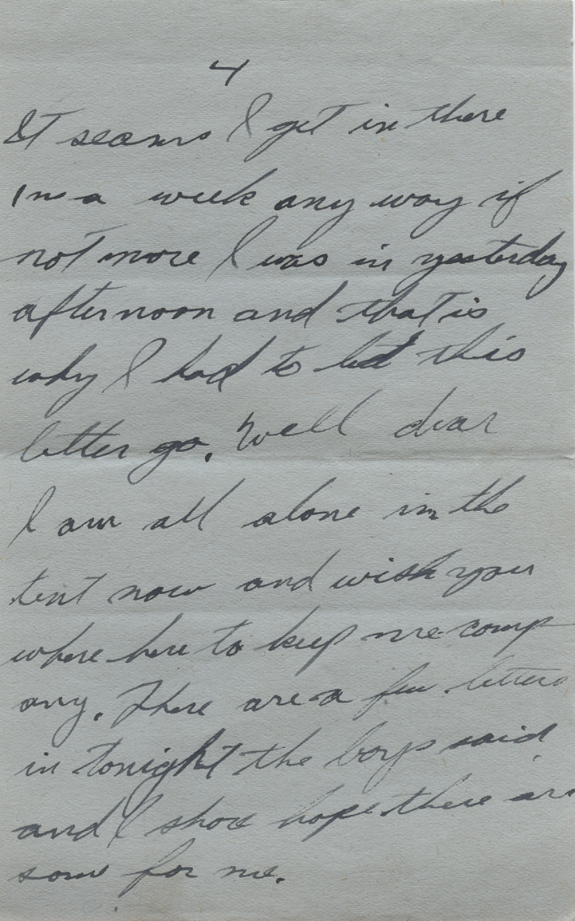 4
It seams I get in there
in a week any way if
not more I was in yesterday
afternoon and that is
why I had to let this
letter go. Well dear
I am all alone in the
tent now and wish you
where here to keep me comp
any. There are a few letters
in tonight the boys said
and I shore hope there are
some for me.